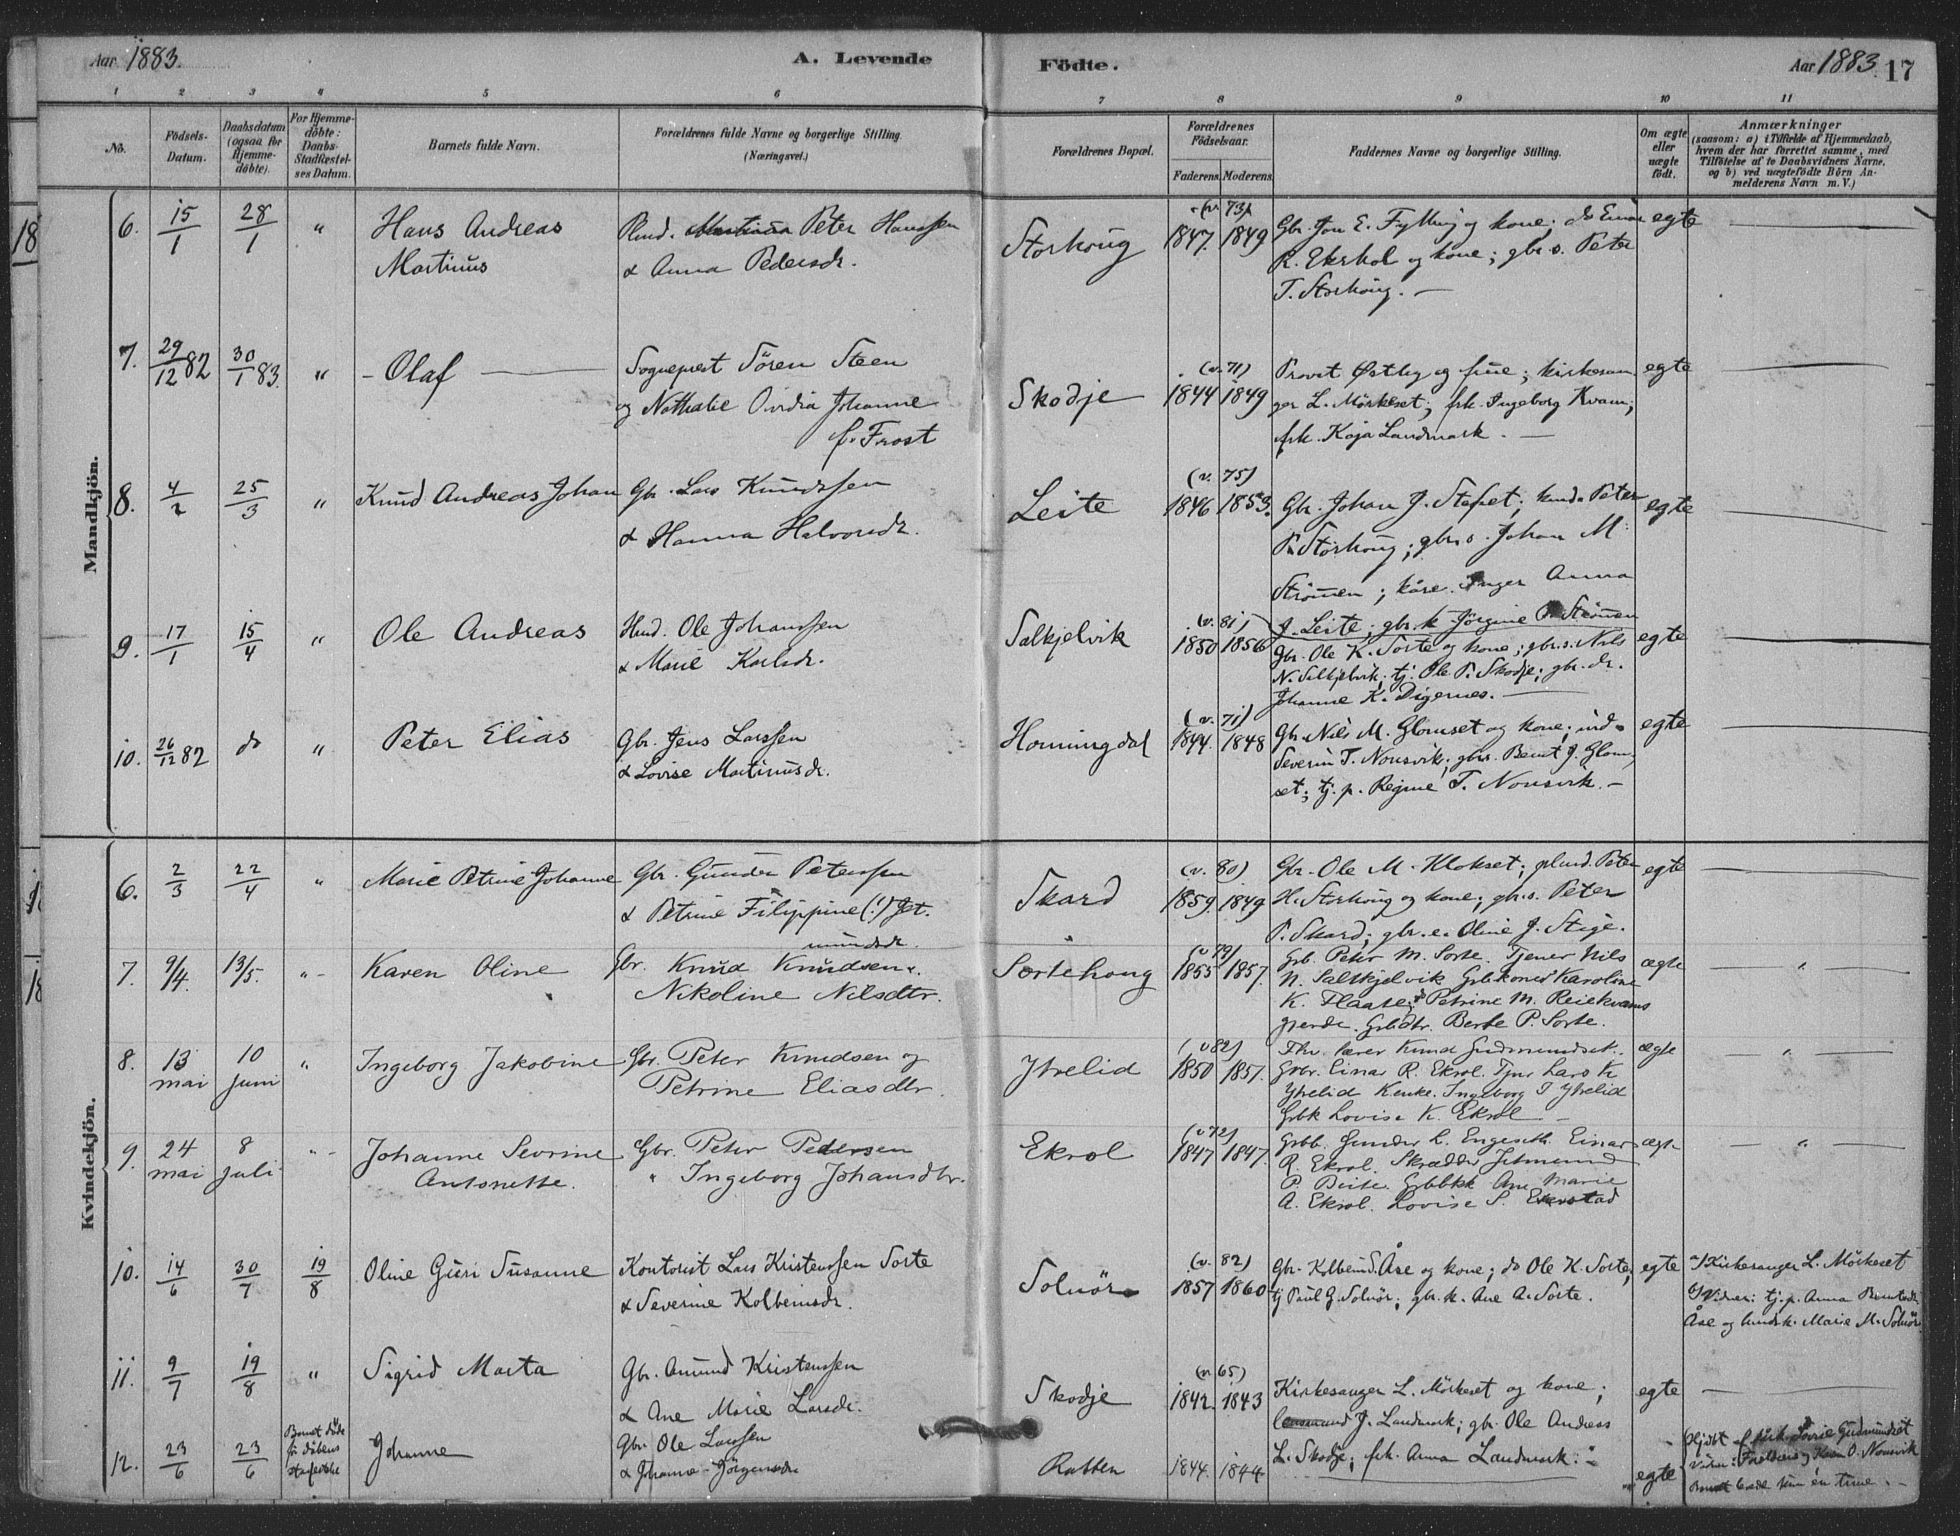 Aar 1883.
A. Levende
Födte.
Aar 1883. 17
1 2 3 4 5 6 7 8 9 10 11
No.
Födsels-
Datum.
Daabsdatum
(ogsaa for
Hjemme-
döbte).
For Hjemme-
döbte:
Daabs-
Stadfæstel-
ses Datum.
Barnets fulde Navn.
Forældrenes fulde Navne og borgerlige Stilling.
(Næringsvei.)
Forældrenes Bopæl.
Forældrenes
Födselsaar.
Faderens. Moderens.
Faddernes Navne og borgerlige Stilling.
Om ægte
eller
uægte
födt.
Anmærkninger
(saasom: a) i Tilfælde af Hjemmedaab,
hvem der har forrettet samme, med
Tilföielse af to Daabsvidners Navne,
og b) ved uægtefödte Börn An-
melderens Navn m. V.)
Mandkjön.
6. 15/1 28/1 " Hans Andreas
Martinus
Peter Hanssen
& Anna Pedersdr.
Storhoug
(v. 73)
1847. 1849
Gbr. Jon E. Fylling og kone; do Einar
R. Ekrhol og kone; gbr.s. Peter
T. Storhoug. —
egte
7. 29/12 82 30/1 83. " Olaf
Sogneprest Sören Steen
og Nathalie Ovidia Johanne
f. Frost
Skodje
(v. 71)
1844 1849
Provst Østby og frue; kirkesan
ger L. Mörkeset; frk. Ingeborg Kvam;
frk. Kaja Landmark. —
egte
8. 4/2 25/3 " Knud Andreas Johan
Gbr. Lars Knudssen
& Hanna Halvorsdr.
Leite
(v. 75)
1846 1853.
Gbr. Johan J. Stefset; Peter
P. Storhoug; gbr.s. Johan M.
Strömen; Inger Anna
J. Leite; gbr.k. Jörgine P. Strömen
egte
9. 17/1 15/4 " Ole Andreas
Hmd. Ole Johanssen
& Marie Karlsdr.
Salkjelvik
(v. 81)
1850 1856
Gbr. Ole K. Sorte og kone; gbr.s. Nils
N. Salkjelvik; tj. Ole P. Skodje; gbr.dr.
Johanne K. Digernes. —
egte
10. 26/12 82 do " Peter Elias
Gbr. Jens Larssen
& Lovise Martinusdr.
Horningdal
(v. 71)
1844. 1848
Gbr. Nils M. Glomset og kone; ind.
Severin T. Nonsvik; gbrs. Bernt J. Glom-
set; tj.p. Regine T. Nonsvik. —
egte
Kvindekjön.
6. 2/3 22/4 " Marie Petrine Johanne
Gbr. Gunder Peterssen
& Petrine Filippine (!) Jet-
mundsdr.
Skard
(v. 80)
1859. 1849
Gbr. Ole M. Klokset; plmd. Peter
H. Storhoug og kone; gbr.s. Peter
P. Skard; gbr.e. Oline J. Stige.
egte
7. 9/4. 13/5. " Karen Oline
Gbr. Knud Knudsen &
Nikoline Nilsdtr.
Sortehoug
(v 79)
1855 1857.
Grb. Peter M. Sorte. Tjener Nils
N. Saltkjelvik Grbkoner Karoline
K. Flaate, Petrine M. Reiekvams
gjerde. Grbdtr. Berte P. Sorte.
ægte
8. 13 mai 10 juni " Ingeborg Jakobine
Gbr. Peter Knudsen og
Petrine Eliasdtr.
Ytrelid
(v 82)
1850 1857.
Fhv. lærer Knud Gudmundset.
Grbr. Einar R. Ekrol. Tjnr Lars K
Ytrelid Ingeborg T Ytrelid
Grbk Lovise K. Ekrol —
ægte
9. 24 mai 8 juli " Johanne Sevrine
Antonette.
Gbr. Peter Pedersen
" Ingeborg Johansdtr.
Ekrol
(v 72)
1847 1847.
Grbb. Gunder L. Engeseth. Einar
R. Ekrol. Skrædder Jetmund
P. Grbbkk Ane Marie
A. Ekrol. Lovise S. Ekrestad
ægte
10. 14/6 30/7 19/8 Oline Guri Susanne
Kontorist Lars Kristenssen Sorte
& Severine Kolbeinsdr.
Solnör
(v. 82)
1857 1860
Gbr. Kolbein Åse og kone; do Ole K. Sorte;
tj Paul G. Solnör; gbr.k. Ane A. Sorte.
egte
a/ Kirkesanger L. Mörkeset
b/ Vidner: tj.p. Anna Berntsdr.
Åse og Marie M. Solnör.
11. 9/7 19/8 " Sigrid Marta
Gbr. Amund Kristenssen
& Ane Marie Larsdr.
Skodje
(v. 65)
1842. 1843
Kirkesanger L. Mörkeset og kone;
lensmand J. Landmark; gbr. Ole Andreas
L. Skodje; frk. Anna Landmark. —
egte
12. 23/6 23/6 Barnet döde
för dåbens
stadfestelse
Johanne
Gbr. Ole Larssen
& Johanne Jörgensdr.
Ratten
1844. 1844
egte
Hjdöbt Lovise Gudmundset
Vidner: Forældrene og Karen O. Nonsvik
Barnet levde kun en time. —